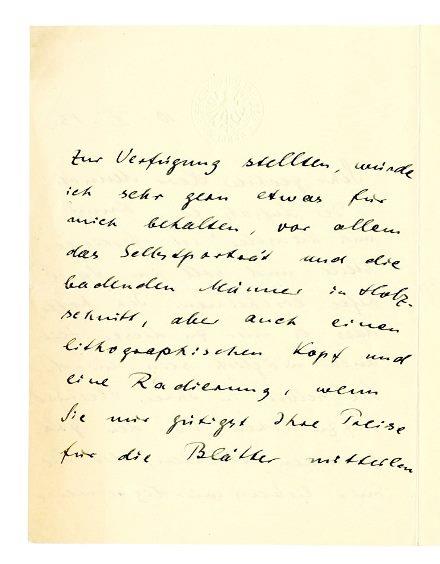 Zur Verfügung stellten, würde
ich sehr gern etwas für
mich behalten, vor allem
das Selbstporträt und die
badenden Männer in Holz-
schnitt, aber auch einen
lithographischen Kopf und
eine Radierung, wenn
Sie mir gütigst Ihre Preise
für die Blätter mitteilen